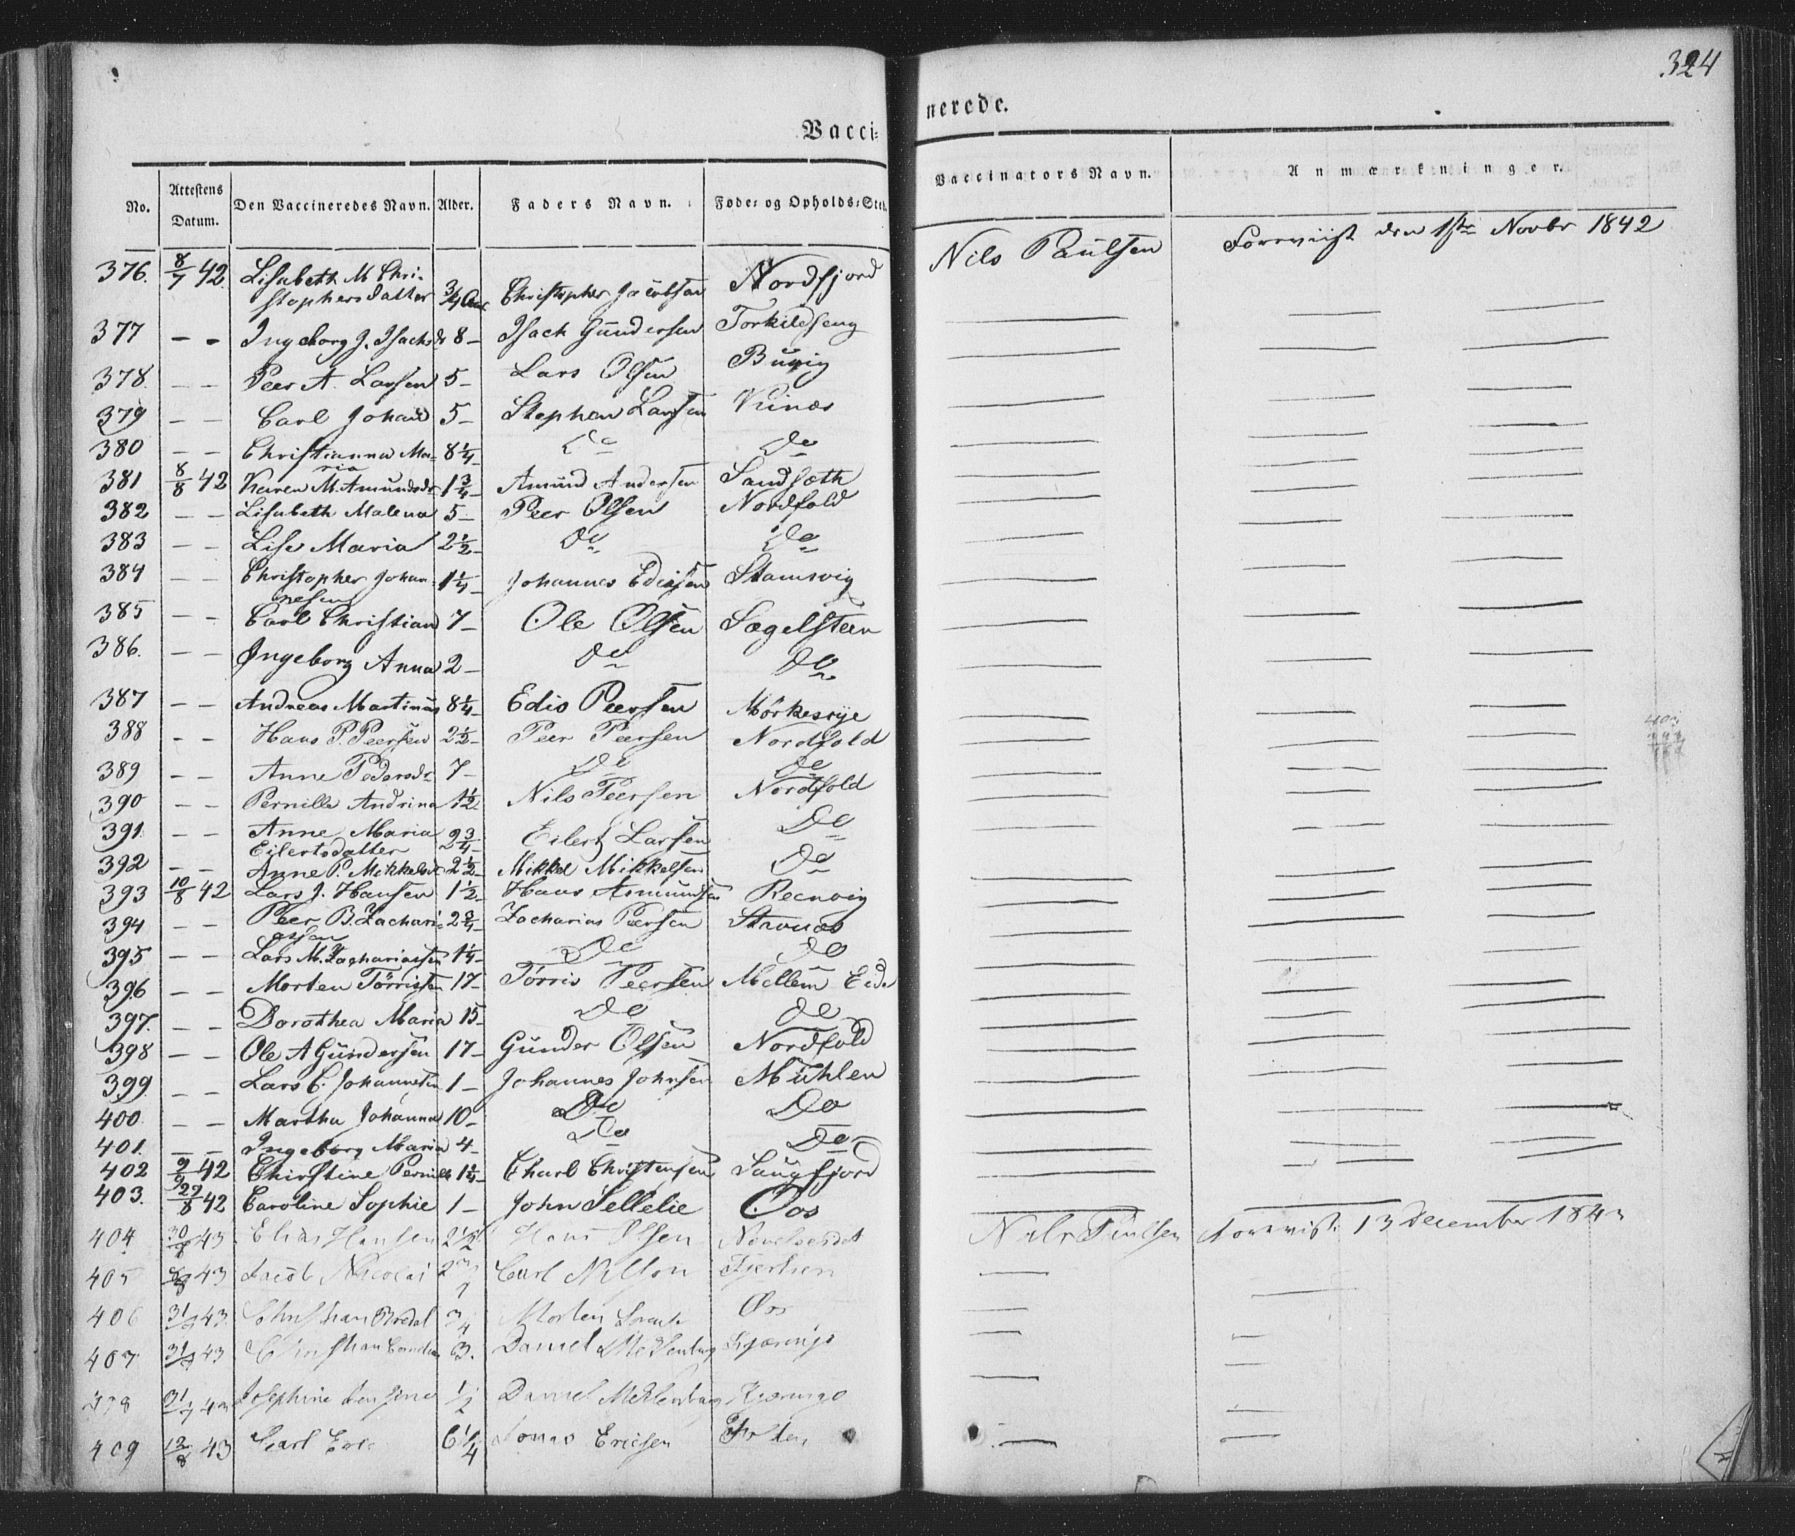 324
Vacci=
nerede.
No.
Attestens Datum.
Den Vaccineredes Navn.
Alder.
Faders Navn.
Føde= og Opholds=Sted.
Vaccinators Navn.
Anmærkninger.
376. 8/7 42. Lisabeth M. Chri- 3/4 Aar Christopher Jacobsen Nordfjord Nils Paulsen Foreviist den 1ste Novbr 1842
stophersdatter
377 - - Ingeborg J. Isachsdr 8 - Isach Gundersen Torkildseng
378. - - Peer A. Larsen 5 - Lars Olsen Buvig
379 - - Carl Johan 5 - Stephen Larsen Vinæs
380 - - Christianna Ma- 8 1/4 - Do Do
ria
381 8/8 42 Karen M. Amundsdr 1 3/4 - Amund Andersen Sandsæth
382 - - Lisabeth Malena 5 - Peer Olsen Nordfold
383 - - Lise Maria 2 1/2 - Do Do
384 - - Christopher Johan- 1 1/4 - Johannes Edissen Stamsvig
nesen
385 - - Carl Christian 7 - Ole Olsen Sagelsteen
386. - - Ingeborg Anna 2 - Do Do
387 - - Andreas Martinus 8 1/4 - Edis Peersen Mørkesvje
388 - - Hans P. Peersen 2 1/2 - Peer Peersen Nordfold
389 - - Anne Pedersdr 7 - Do Do
390 - - Pernille Andrina 1 1/2 - Nils Peersen Nordfold
391. - - Anne Maria 2 3/4 - Eilert Larsen Do
Eilertsdatter
392 - - Anne P. Mikkelsdr 2 1/2 - Mikkel Mikkelsen Do
393 10/8 42 Lars J. Hansen 1 1/2 - Hans Asmundsen Reenvig
394 - - Peer B. Zachari- 2 3/4 - Zacharias Peersen Stavnæs
assen
395 - - Lars M. Zachariassen 1 1/4 - Do Do
396 - - Morten Tørrissen 17 - Tørris Peersen Mellem Eide
397. - - Dorothea Maria 15 - Do Do
398 - - Ole A Gundersen 17 - Gunder Olsen Nordfold
399. - - Lars C. Johannesen 1 - Johannes Johnsen Mühlen
400. - - Martha Johanna 10 - Do Do
401. - - Ingeborg Maria 4 - Do Do
402 9/9 42 Christine Pernille 1 1/4 - Charl Christensen Saugfjord
403. 29/8 42 Caroline Sophie 1 - John Sellelie Oos
404 30/ 43 Elias Hansen 2 1/2 Hans Olsen Nils Paulsen forevist 13 December 184
405 43 Jacob Nicolai 2 Carl Nilson
406 31/ 43. Christian Bredal 3/4 Morten Oos
407 31/ 43 Christian Cornelius 3. Daniel Mechlenburg Kjæringø
31/7 43 Josephine 1/2 Daniel Mechlenburg Kjæringø
409 12/8 43 Carl 6 1/4 Jonas Ericsen